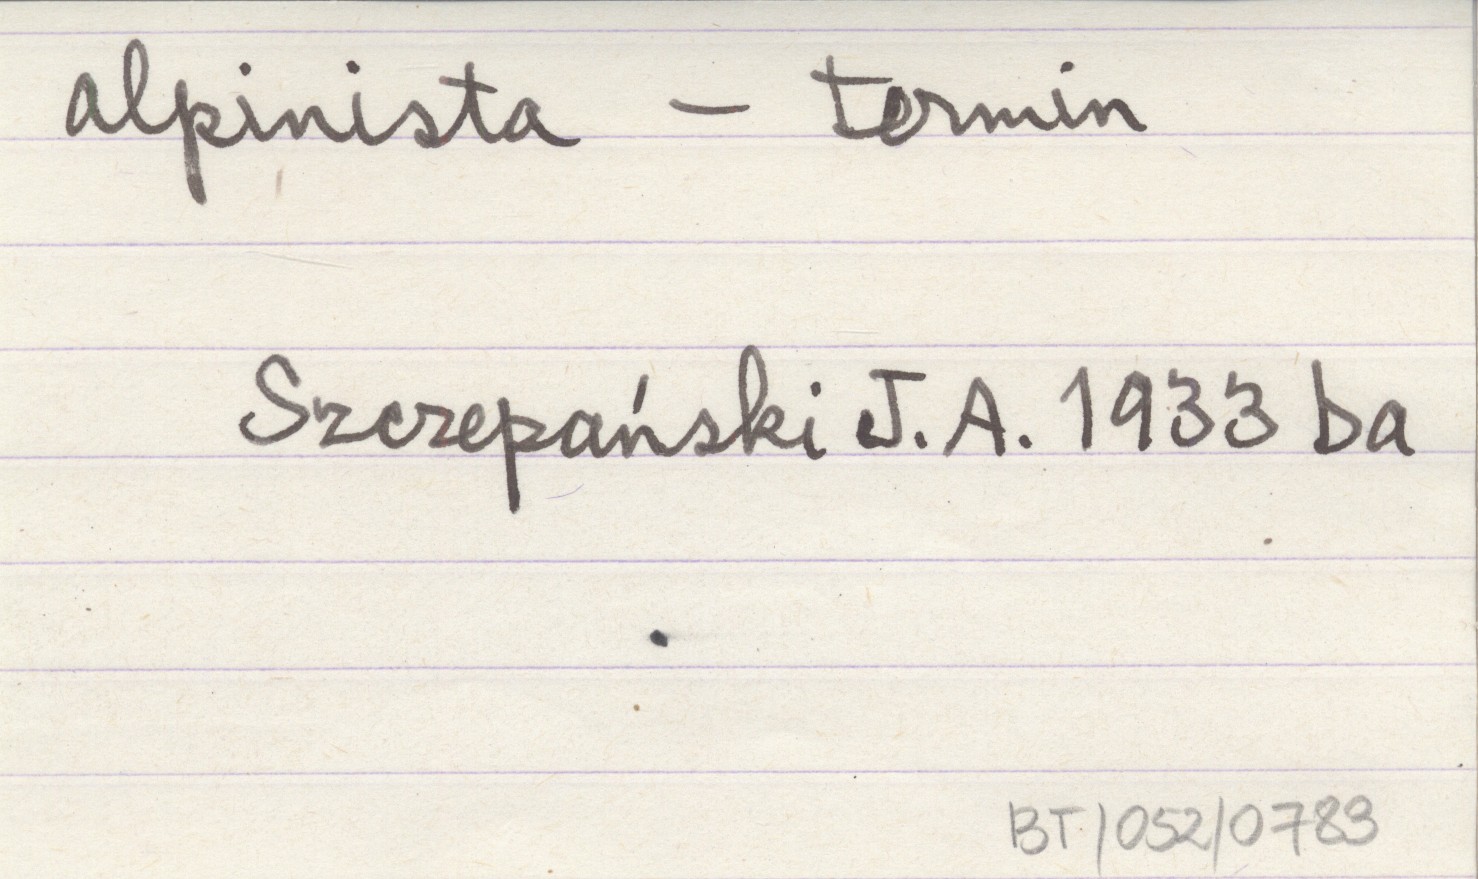 alpinista - termin
Szczepański J.A. 1933 ba
BT/052/0783